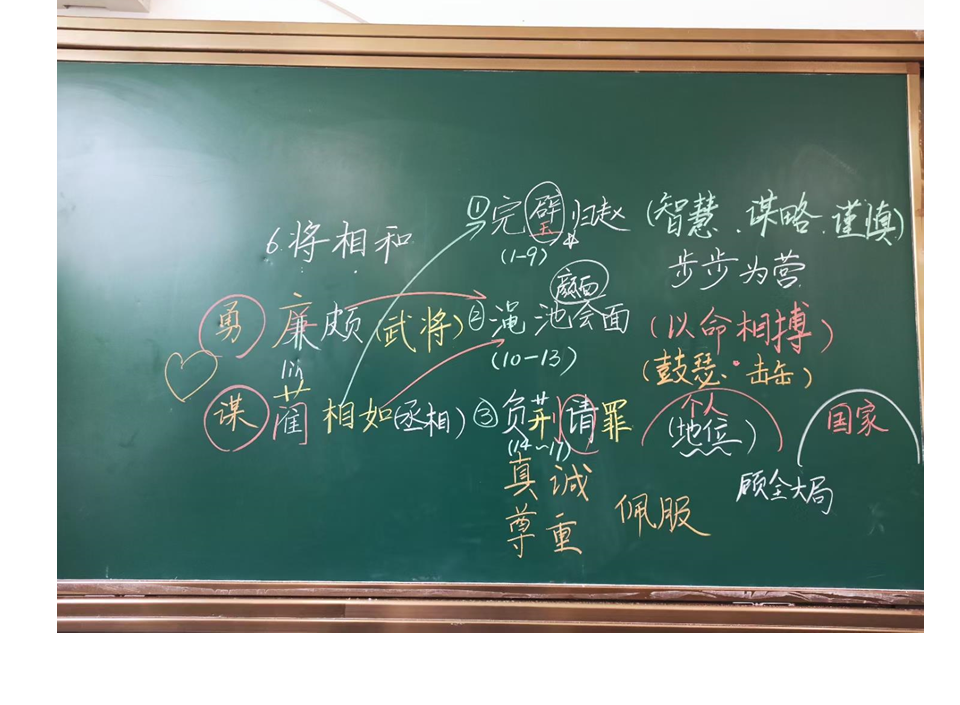 6.将相和
①完璧归赵 (智慧.谋略.谨慎)
(1-9)
步步为营
颜面
勇 廉颇 (武将) ②渑池会面 (以命相搏)
(10-13)
(鼓瑟.击缶)
lìn
谋 蔺相如(丞相) ③负荆请罪 个人 (地位) 国家
(14~17)
顾全大局
真诚
尊重
佩服